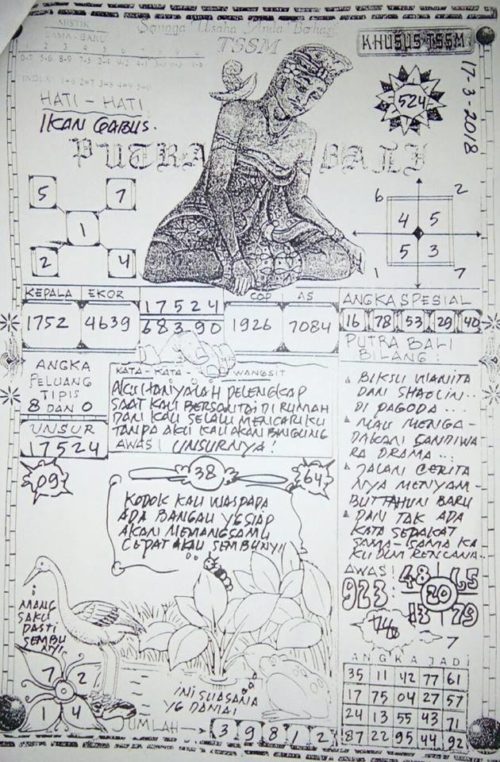 Sangga Usaha Anda Bahagia
TSSM
KHUSUS TSSM
17-3-2018
524
HATI - HATI
IKAN GABUS.
PUTRA BALI
5 7
1
2 4
6 2
4 5
5 3
1 7
KEPALA EKOR
1752 4639
17524
683-90
COP AS
1926 7084
ANGKA SPESIAL
16 78 53 29 40
ANGKA
PELUANG
TIPIS
8 DAN 0
UNSUR
17524
KATA - KATA WANGSIT
AKU HANYALAH PELENGKAP
SAAT KAU BERSANTAI DI RUMAH
DAN KAU SELALU MENCARIKU
TANPA AKU KAU AKAN BINGUNG
AWAS! UNSURNYA!
PUTRA BALI
BILANG:
BIKSU WANITA
DARI SHAOLIN..
DI PAGODA..
MAU MENGA-
DAKAN SANDIWA
RA DRAMA...
JALAN CERITA
NYA MENYAM-
BUT TAHUN BARU
DAN TAK ADA
KATA SEPAKAT
SAMA-SAMA KA
KU DLM RENCANA..
09
38
64
KODOK KAU WASPADA
ADA BANGAU YG SIAP
AKAN MEMANGSAMU
CEPAT KAU SEMBUNYI!
AWAS!
923:
48 65
20
13 79
7
MANG
SAKU
PASTI
SEMBU
NYI!
7 2
1 4
INI SUASANA
YG DAMAI
JUMLAH
3 9 8 1 2
ANGKA JADI
35 11 42 77 61
17 75 04 27 57
24 13 55 43 71
87 22 95 44 92